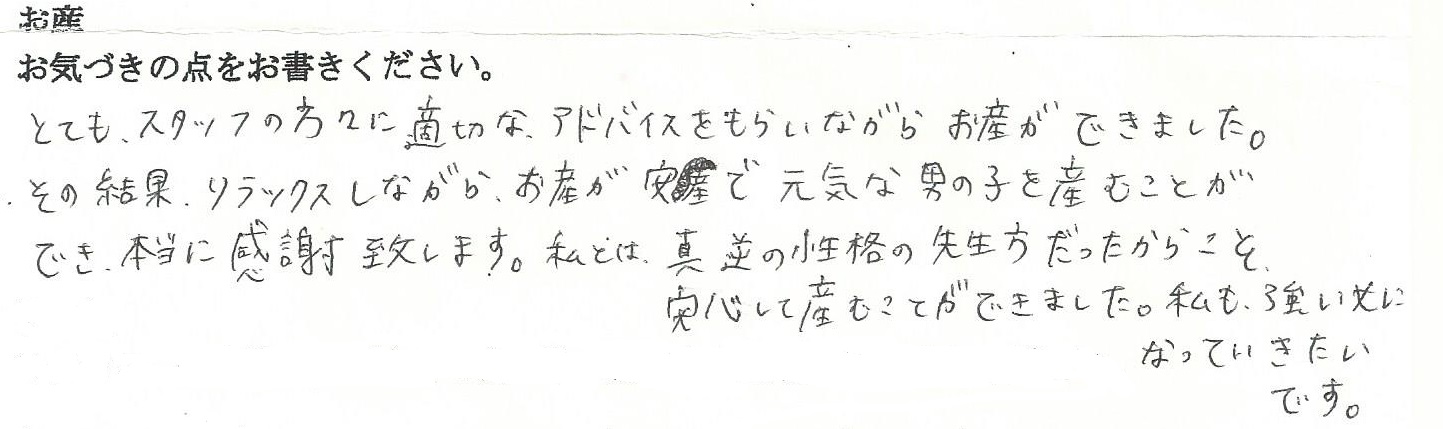 お産
お気づきの点をお書きください。
とても、スタッフの方々に適切な、アドバイスをもらいながら お産ができました。
その結果、リラックスしながら、お産が安産で元気な男の子を産むことが
でき、本当に感謝致します。私とは、真逆の性格の先生方だったからこそ、
安心して産むことができました。私も、強い女に
なっていきたい
です。